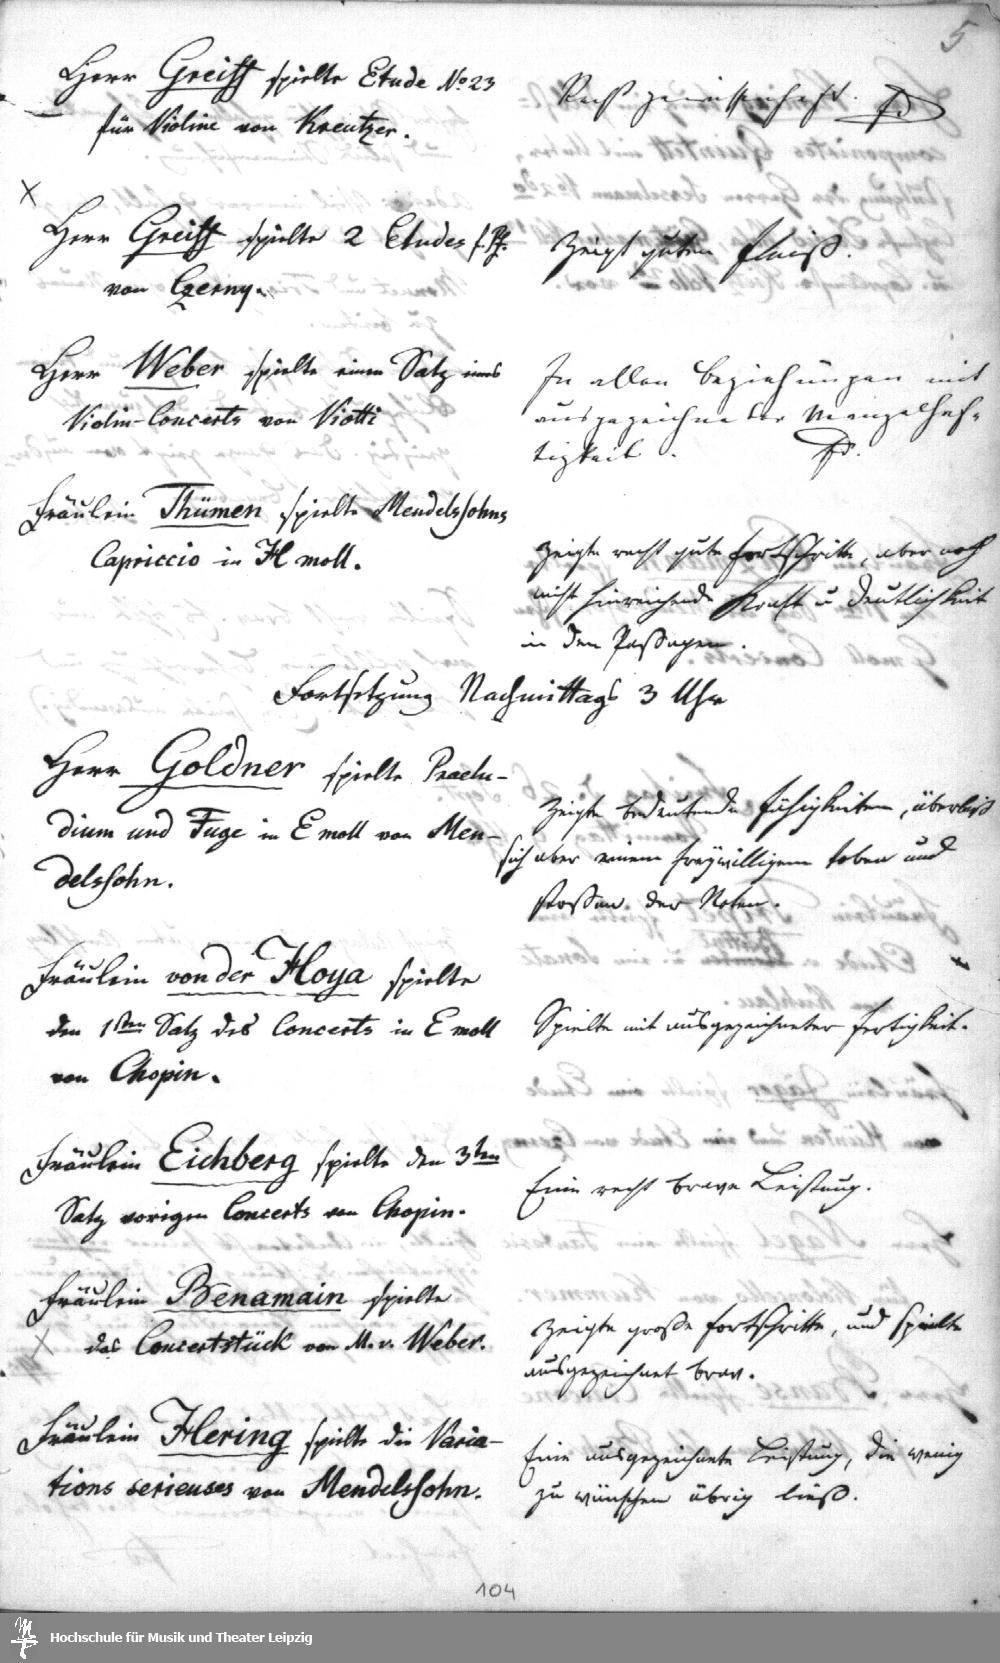 5
Herr Greiff spielte Etude No 23
für Violine von Kreutzer.
Recht gewissenhaft. FD
X
Herr Greiff spielte 2 Etudes f. Pf.
von Czerny.
Zeigt guten Fleiß.
Herr Weber spielte einen Satz eines
Violin-Concerts von Viotti
In allen Beziehungen mit
ausgezeichneter Mangelhaf-
tigkeit. FD.
Fräulein Thümen spielte Mendelssohns
Capriccio in H moll.
Zeigte recht gute Fortschritte, aber noch
nicht hinreichende Kraft u Deutlichkeit
in den Passagen.
Fortsetzung Nachmittags 3 Uhr
Herr Goldner spielte Praelu-
dium und Fuge in E moll von Men-
delssohn.
Zeigte bedeutende Fähigkeiten, überließ
sich aber einem freywilligem toben und
stoßen der Noten.
Fräulein von der Hoya spielte
den 1sten Satz des Concerts in E moll
von Chopin.
Spielte mit ausgezeichneter Fertigkeit.
Fräulein Eichberg spielte den 3ten
Satz vorigen Concerts von Chopin.
Eine recht brave Leistung.
Fräulein Benamain spielte
X das Concertstück von M. v. Weber.
Zeigte große Fortschritte, und spielte
ausgezeichnet brav.
Fräulein Hering spielte die Varia-
tions serieuses von Mendelssohn.
Eine ausgezeichnete Leistung, die wenig
zu wünschen übrig ließ.
104
Hochschule für Musik und Theater Leipzig